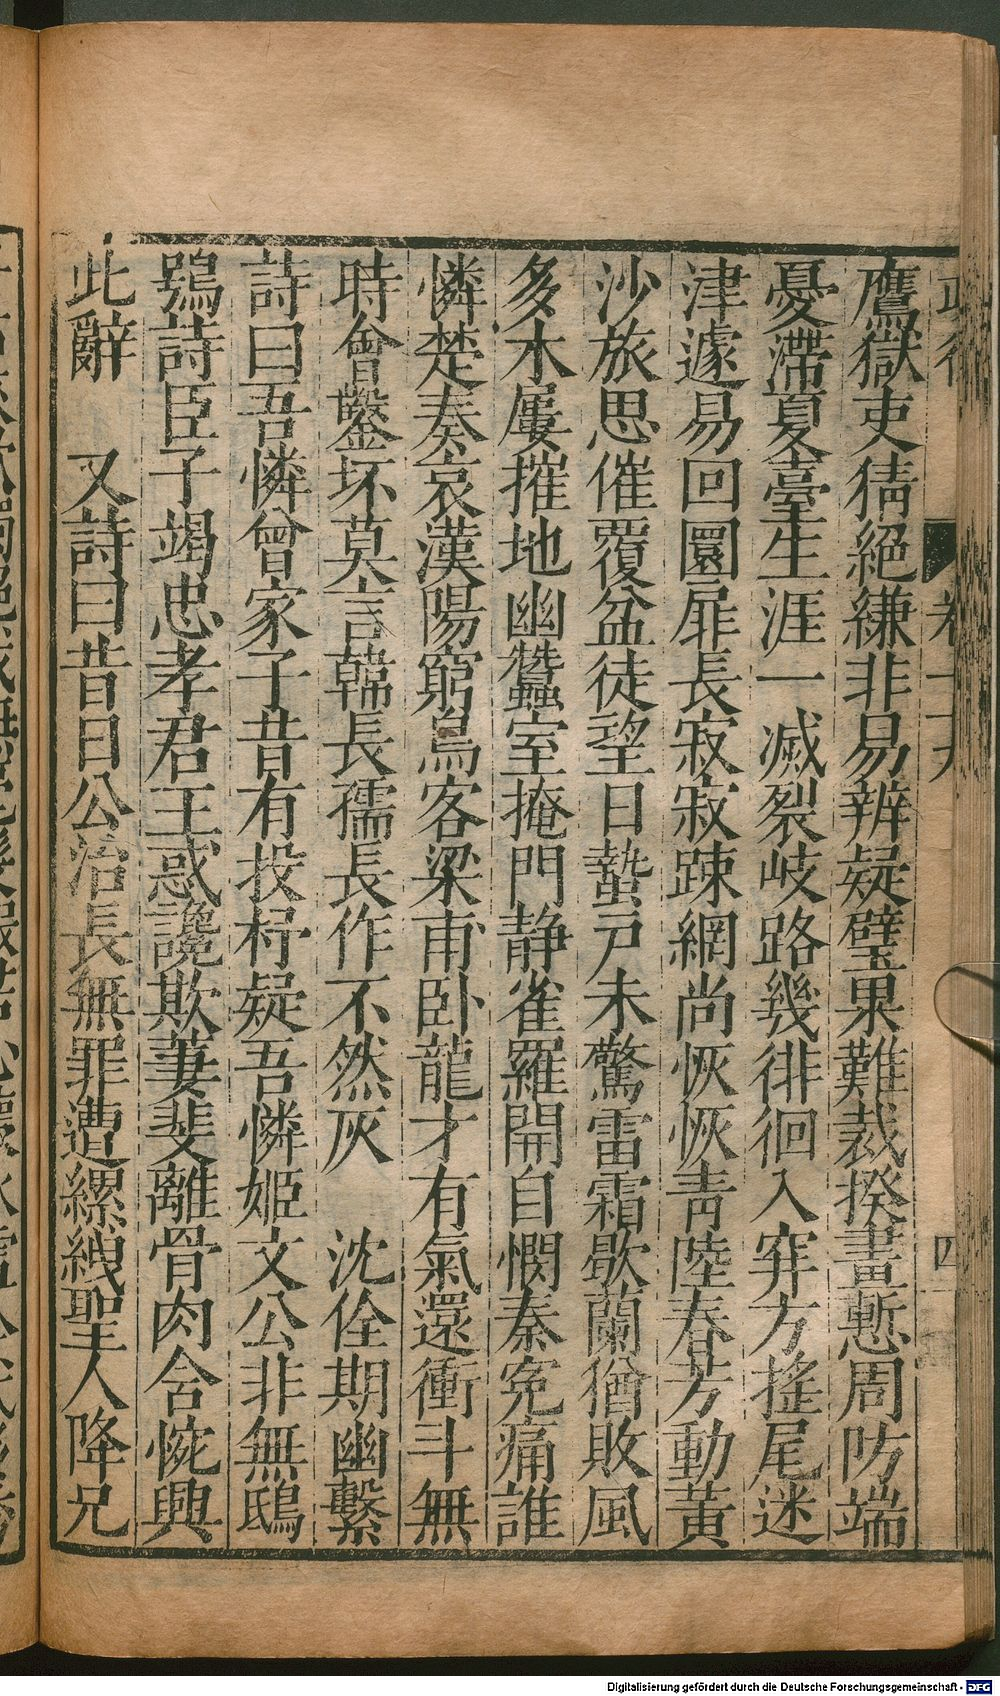 鷹獄吏猜絕縑非易辨疑璧果難裁揆畫慙周防端
憂滯夏臺生涯一滅裂岐路幾徘徊入穽方搖尾迷
津遽易回圜扉長寂寂踈網尚恢恢靑陸春芳動黃
沙旅思催覆盆徒望日蟄戸未驚雷霜歇蘭猶敗風
多木屢摧地幽蠶室掩門静雀羅開自憫秦寃痛誰
憐楚奏哀漢陽窮鳥客梁甫卧龍才有氣還衝斗無
時會鑿坏莫言韓長孺長作不然灰　沈佺期幽繫
詩曰吾憐曾家子昔有投杼疑吾憐姬文公非無鴟
鴞詩臣子竭忠孝君王惑讒欺萋斐離骨肉含惋興
此辭　又詩曰昔日公冶長無罪遭縲絏聖人降兄
四
Digitalisierung gefördert durch die Deutsche Forschungsgemeinschaft - DFG